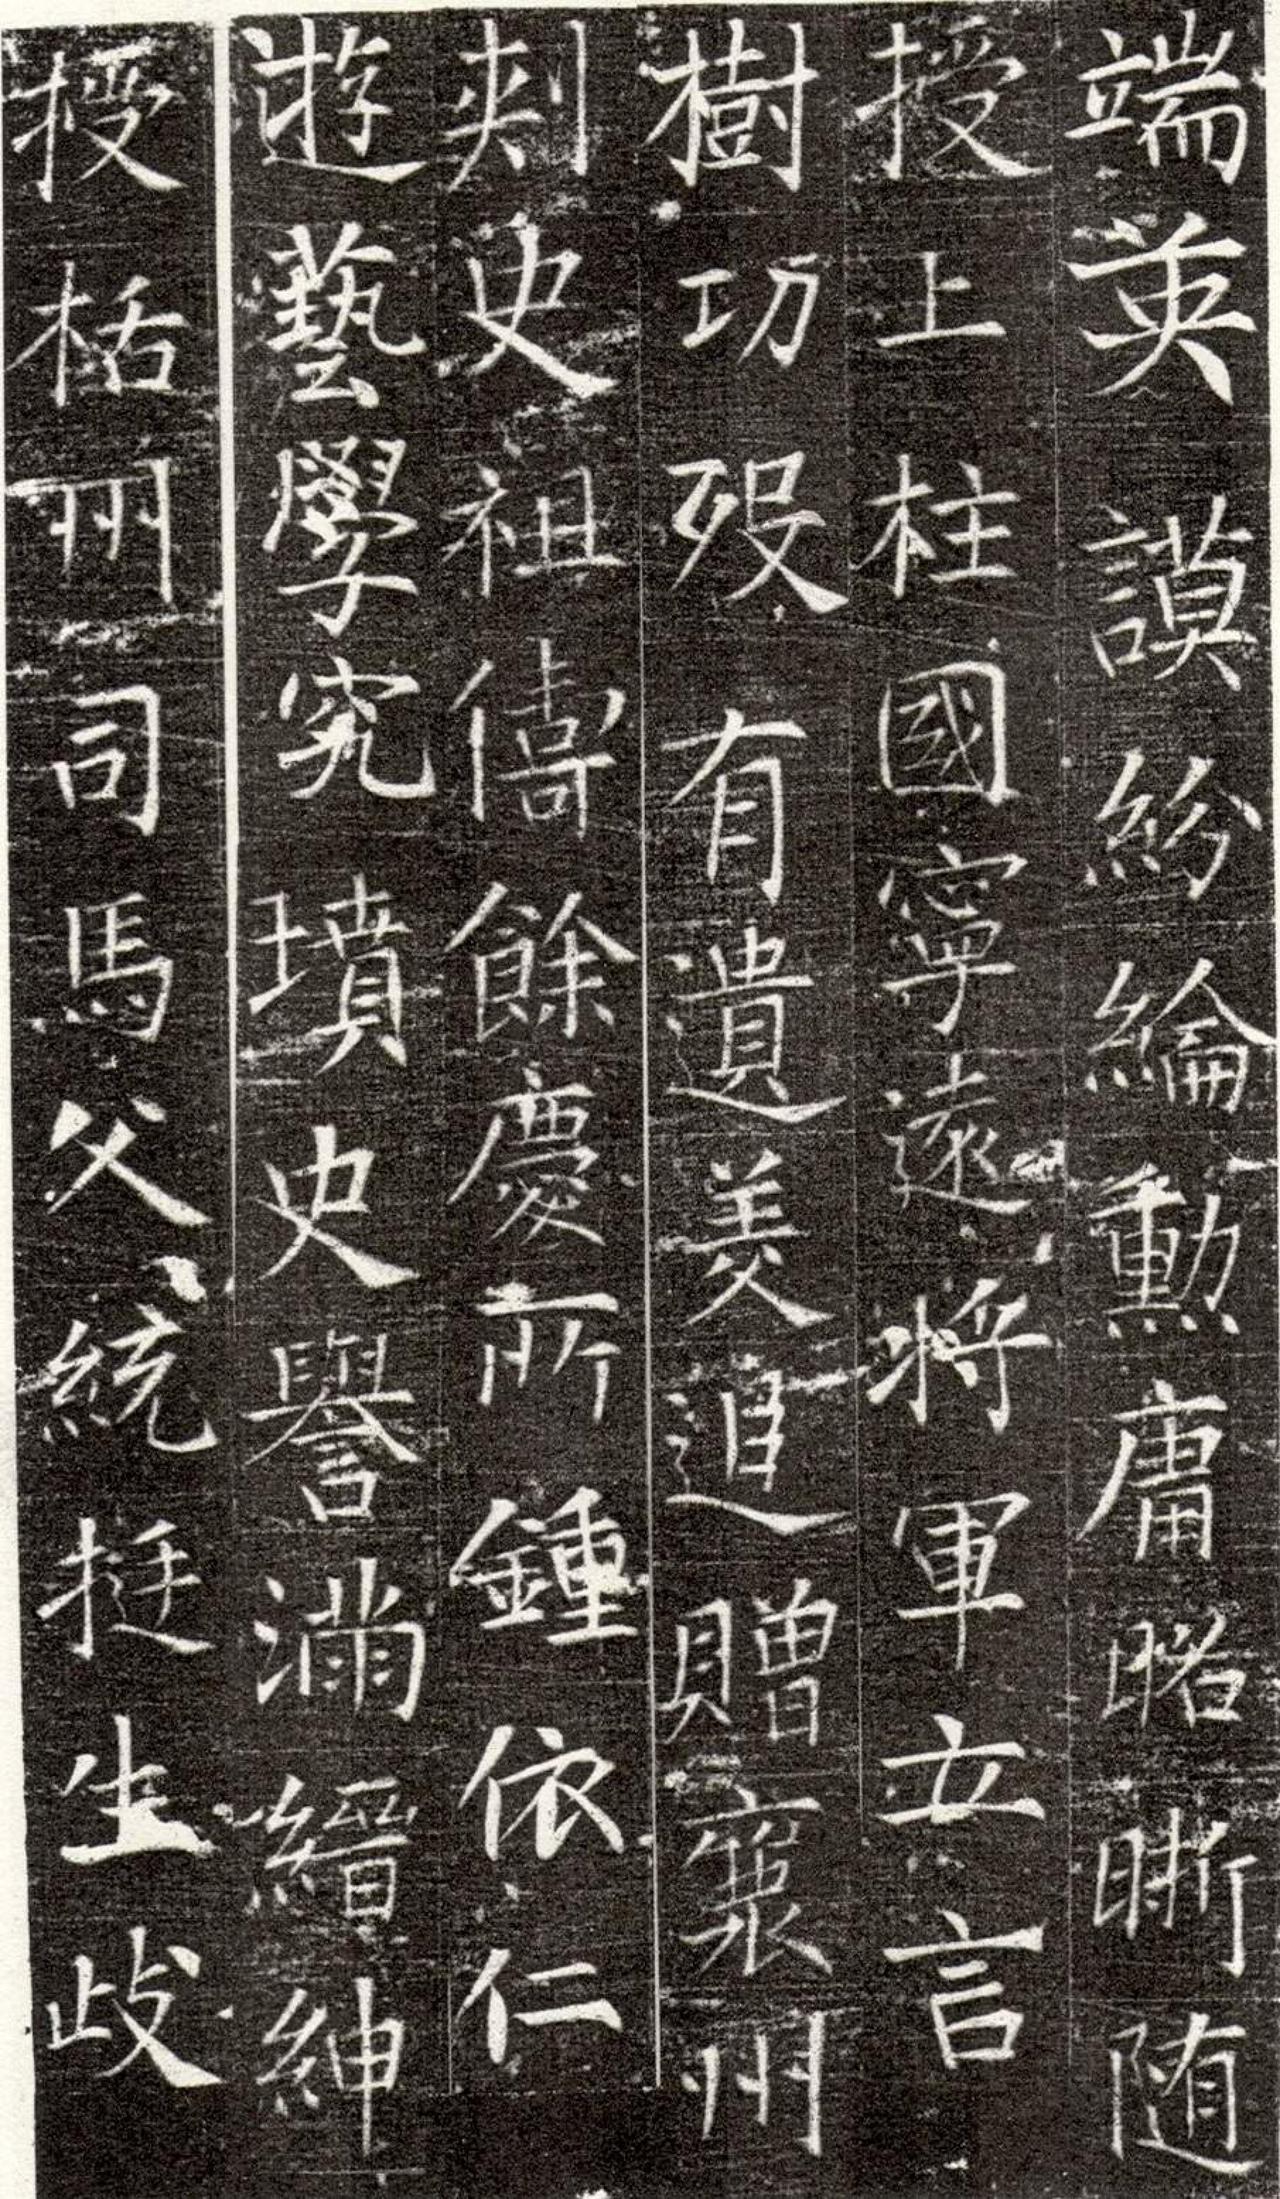 端英謨紛綸勳庸昭晰随
授上柱國寧遠将軍立言
樹功歿有遺美追贈襄州
刺史祖儔餘慶所鍾依仁
遊藝學究墳史譽滿縉紳
授栝州司馬父統挺生歧